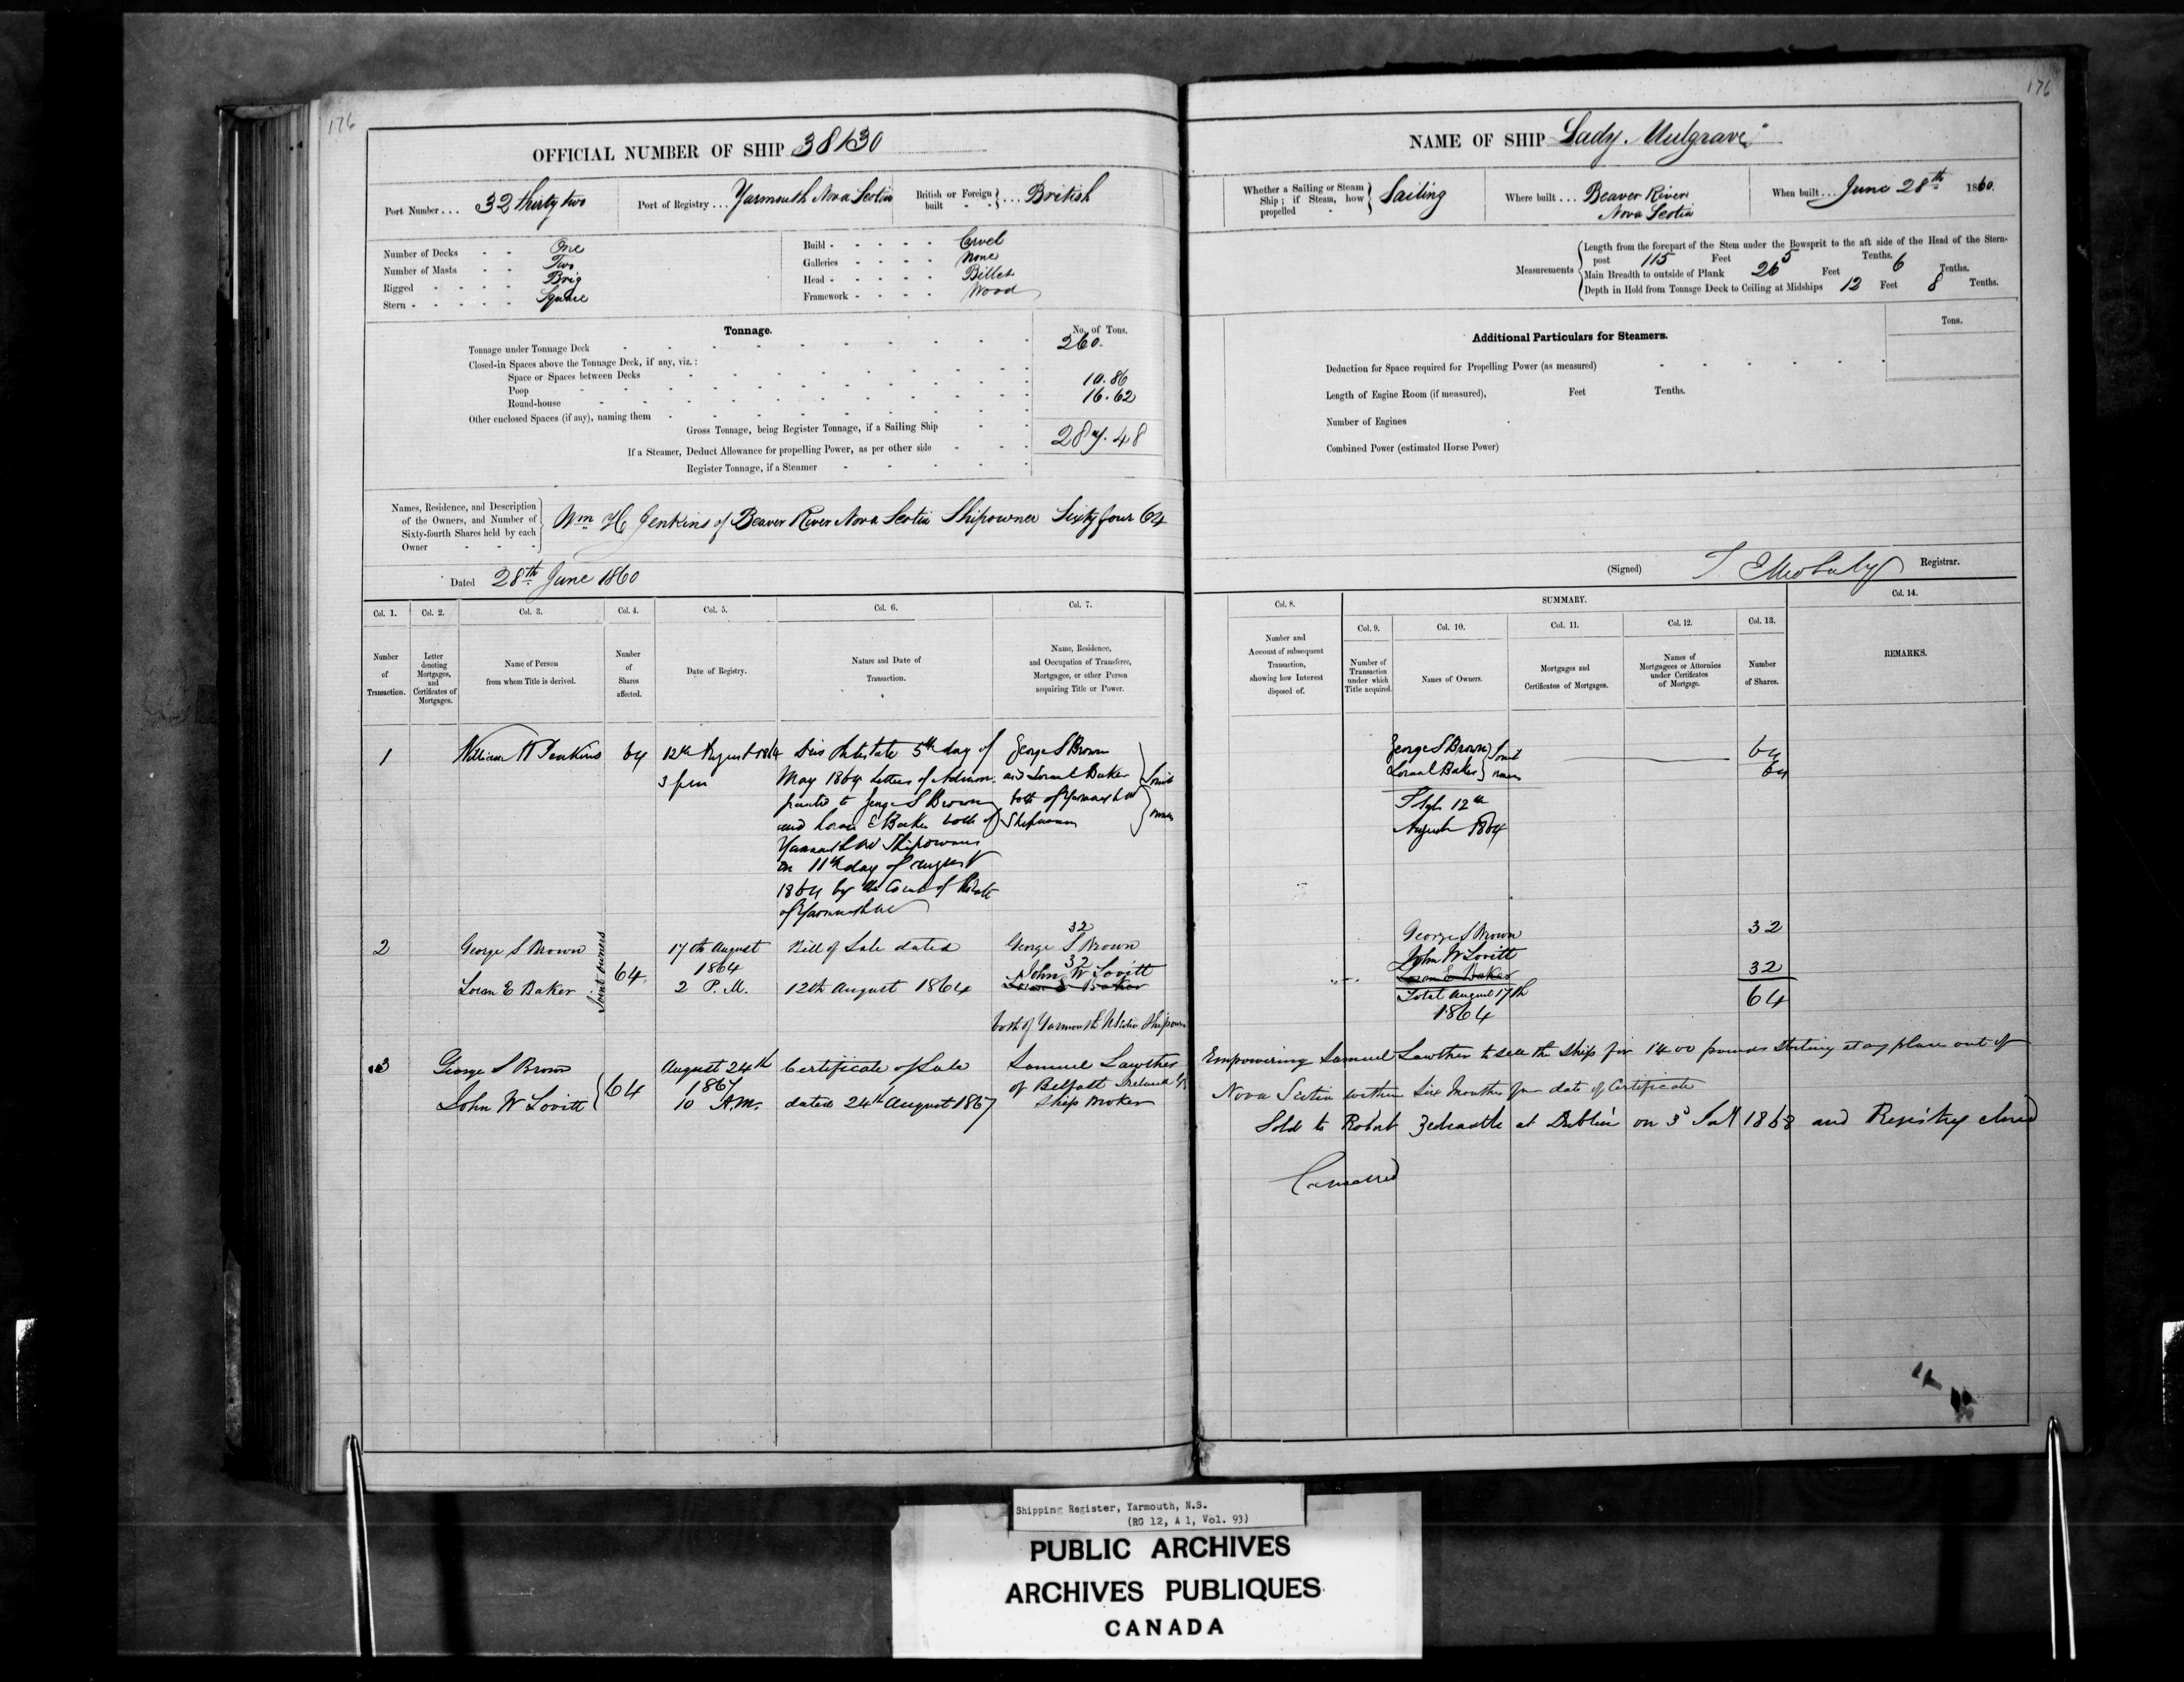 176
OFFICIAL NUMBER OF SHIP 38130
Port Number... 32 Thirty two
Port of Registry... Yarmouth Nova Scotia
British or Foreign built }... British
Number of Decks - - One
Number of Masts - - Two
Rigged - - - - Brig
Stern - - - - - Square
Build - - - - - Carvel
Galleries - - - - None
Head - - - - - Billet
Framework - - - - Wood
Tonnage.
No. of Tons.
Tonnage under Tonnage Deck 260.
Closed-in Spaces above the Tonnage Deck, if any, viz.:
Space or Spaces between Decks
Poop 10.86
Round-house 16.62
Other enclosed Spaces (if any), naming them
Gross Tonnage, being Register Tonnage, if a Sailing Ship 287.48
If a Steamer, Deduct Allowance for propelling Power, as per other side
Register Tonnage, if a Steamer
Names, Residence, and Description
of the Owners, and Number of
Sixty-fourth Shares held by each
Owner
Wm H Jenkins of Beaver River Nova Scotia Shipowner Sixty four 64
Dated 28th June 1860
Col. 1. Col. 2. Col. 3. Col. 4. Col. 5. Col. 6. Col. 7.
Number
of
Transaction.
Letter
denoting
Mortgages,
and
Certificates of
Mortgages.
Name of Person
from whom Title is derived.
Number
of
Shares
affected.
Date of Registry.
Nature and Date of
Transaction.
Name, Residence,
and Occupation of Transferee,
Mortgagee, or other Person
acquiring Title or Power.
1
William H Jenkins
64
12th August 1864
3 pm
Dies Intestate 5th day of
May 1864 Letters of Admon.
granted to George S Brown
and Loran E Baker both of
Yarmouth NS Shipowners
on 11th day of August
1864 by the Court of Probate
of Yarmouth NS
George S Brown
and Loran E Baker
both of Yarmouth NS
Shipowners
Joint
owners
2
George S Brown
Loran E Baker
Joint owners
64
17th August
1864
2 P.M.
Bill of Sale dated
12th August 1864
32
George S Brown
32
John W Lovitt
Loran E Baker
both of Yarmouth N Scotia Shipowners
3
George S Brown
John W Lovitt
64
August 24th
1867
10 A.M.
Certificate of Sale
dated 24th August 1867
Samuel Lawther
of Belfast Ireland
Ship Broker
176
NAME OF SHIP Lady. Mulgrave
Whether a Sailing or Steam
Ship; if Steam, how
propelled
Sailing
Where built... Beaver River
Nova Scotia
When built... June 28th 1860.
Measurements
Length from the forepart of the Stem under the Bowsprit to the aft side of the Head of the Stern-
post 115 Feet 5 Tenths.
Main Breadth to outside of Plank 26 Feet 6 Tenths.
Depth in Hold from Tonnage Deck to Ceiling at Midships 12 Feet 8 Tenths.
Additional Particulars for Steamers.
Tons.
Deduction for Space required for Propelling Power (as measured)
Length of Engine Room (if measured), Feet Tenths.
Number of Engines
Combined Power (estimated Horse Power)
(Signed) Registrar.
Col. 8.
SUMMARY.
Col. 9. Col. 10. Col. 11. Col. 12. Col. 13.
Col. 14.
Number and
Account of subsequent
Transaction,
showing how Interest
disposed of.
Number of
Transaction
under which
Title acquired.
Names of Owners.
Mortgages and
Certificates of Mortgages.
Names of
Mortgagees or Attornies
under Certificates
of Mortgage.
Number
of Shares.
REMARKS.
George S Brown
Loran E Baker
Joint
owners
64
64
12th
August 1864
George S Brown 32
John W Lovitt
Loran E Baker 32
Total August 17th 64
1864
Empowering Samuel Lawther to sell the Ship for 1400 pounds Sterling at any place out of
Nova Scotia within Six Months from date of Certificate
Sold to Robert at Dublin on 3d 1868 and Registry closed
Shipping Register, Yarmouth, N.S.
(RG 12, A 1, Vol. 93)
PUBLIC ARCHIVES
ARCHIVES PUBLIQUES
CANADA